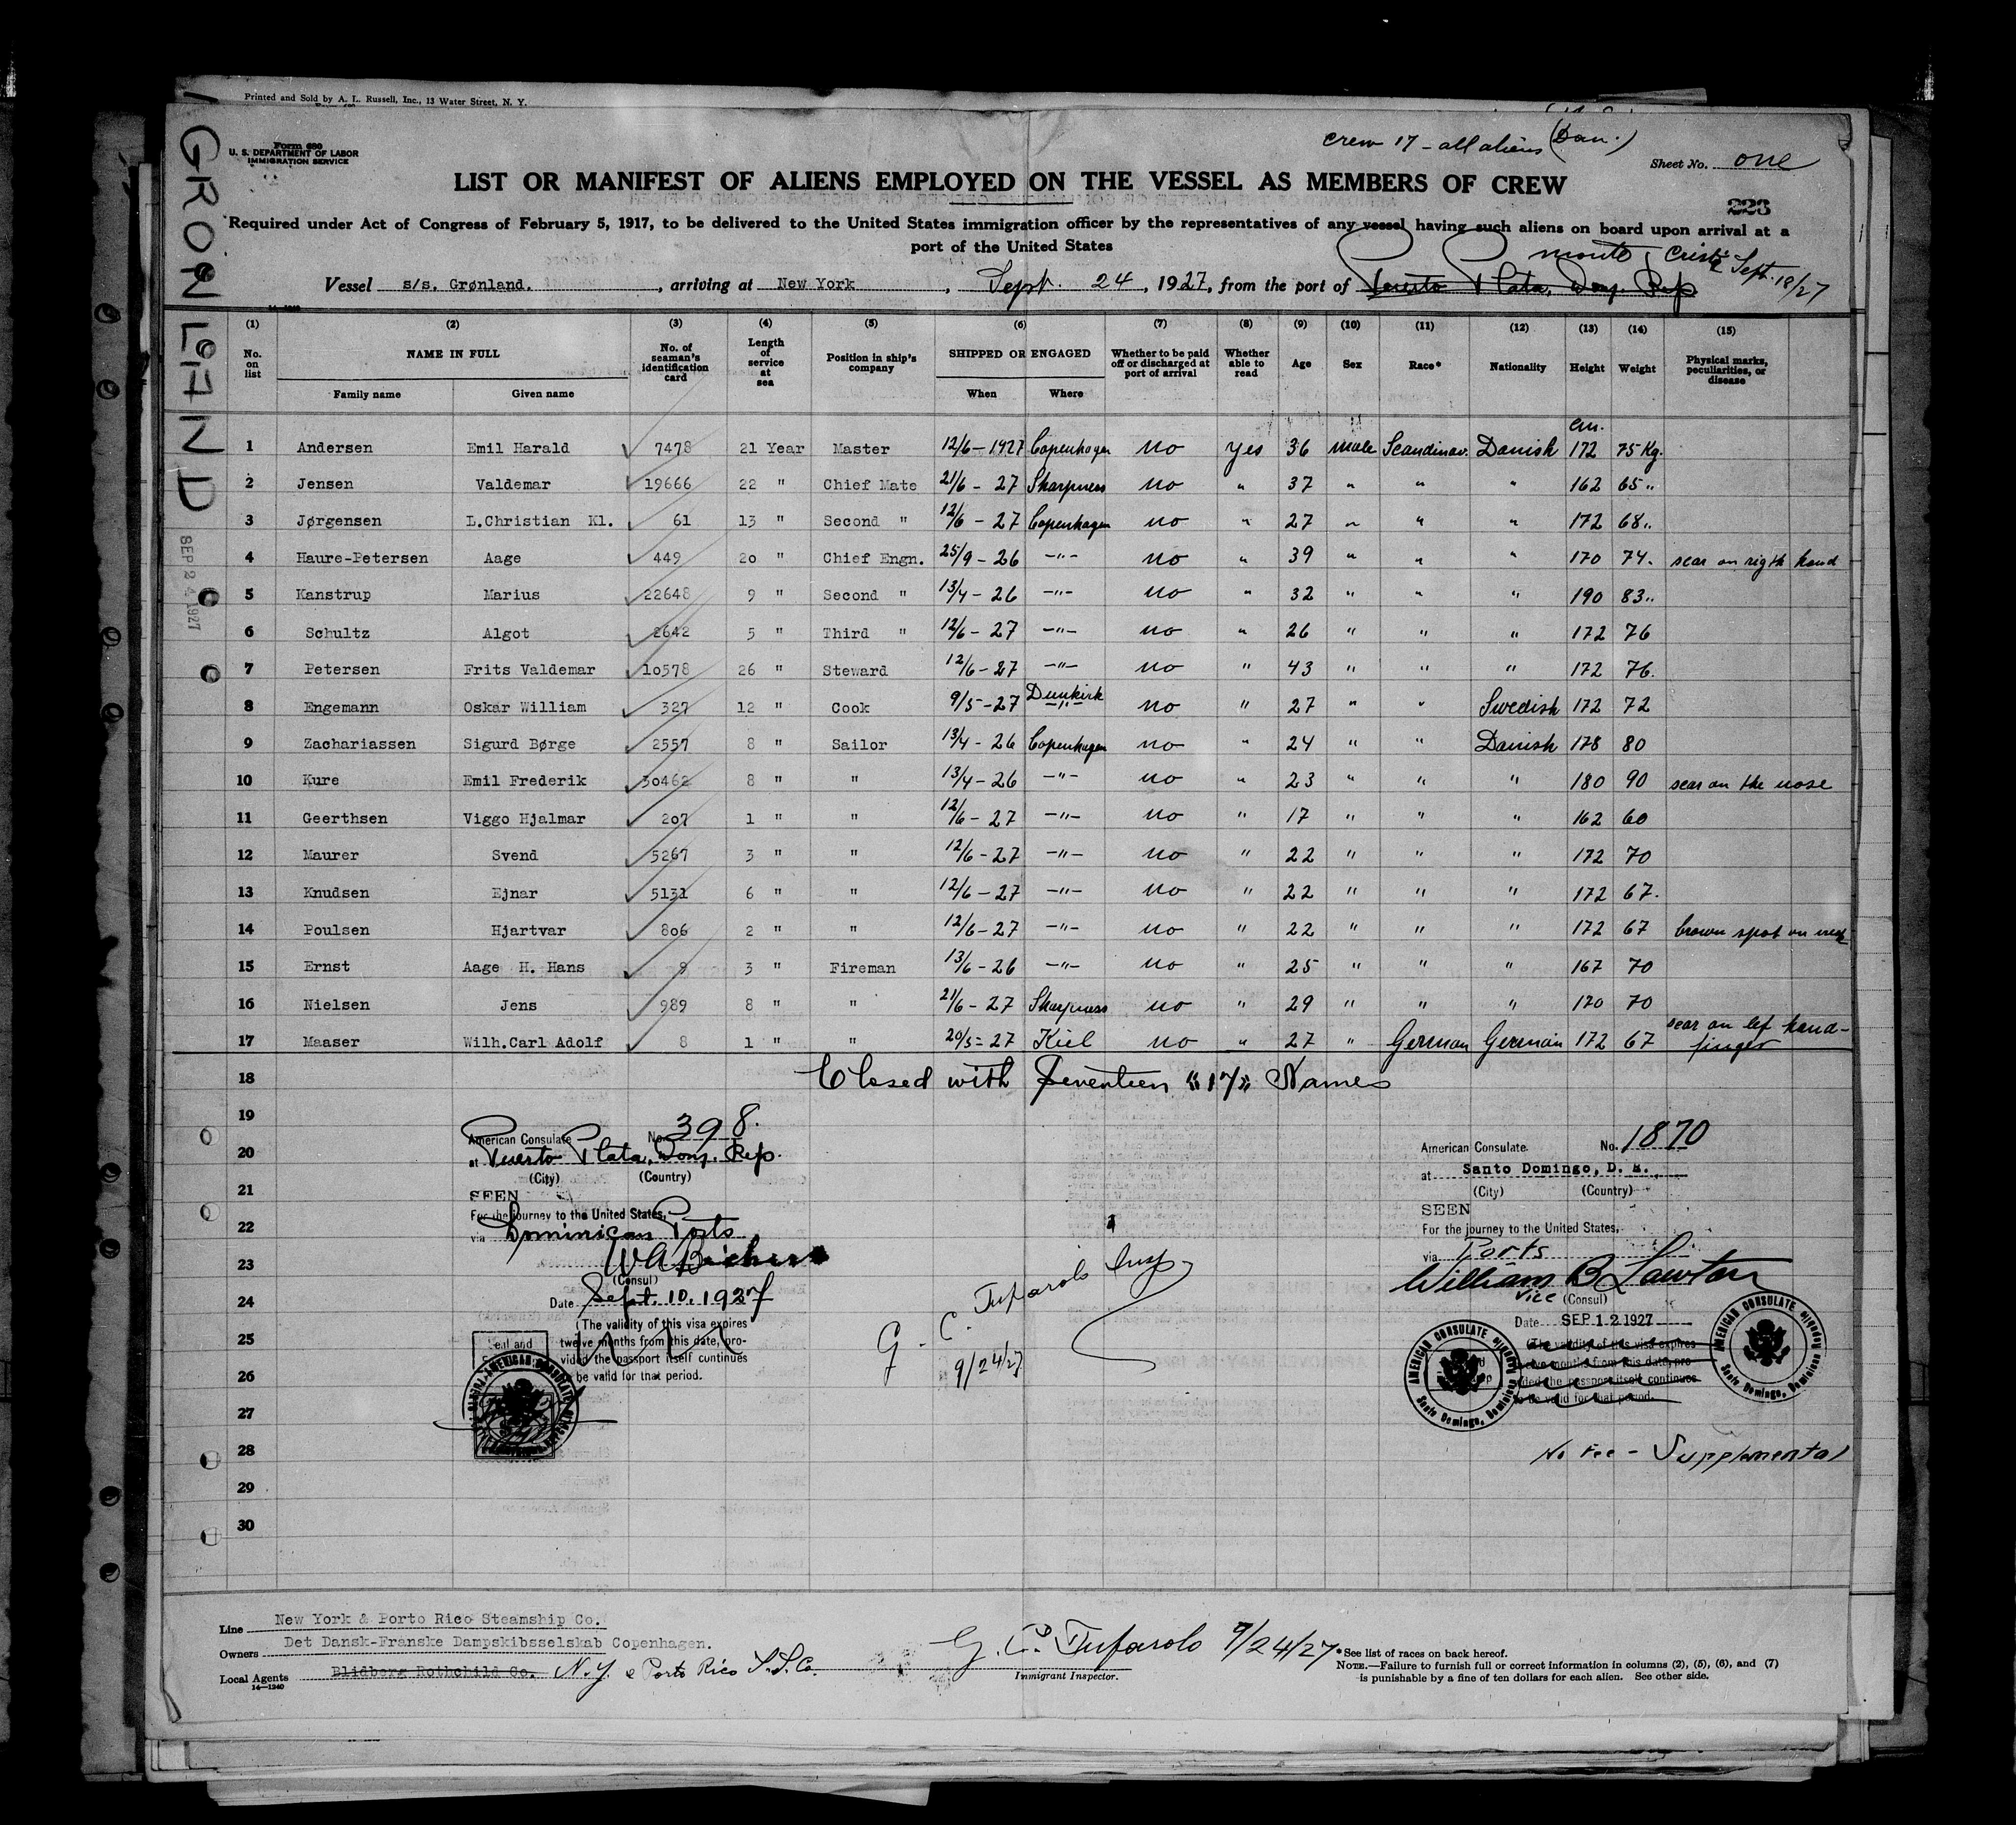 Printed and Sold by A. L. Russell, Inc., 13 Water Street, N. Y.
GRONLAND
SEP 24 1927
Form 680
U. S. DEPARTMENT OF LABOR
IMMIGRATION SERVICE
crew 17 - all aliens (Dan.)
Sheet No. one
LIST OR MANIFEST OF ALIENS EMPLOYED ON THE VESSEL AS MEMBERS OF CREW
223
Required under Act of Congress of February 5, 1917, to be delivered to the United States immigration officer by the representatives of any vessel having such aliens on board upon arrival at a
port of the United States
Monte Cristi Sept. 18/27
Vessel s/s. Grønland. , arriving at New York , Sept. 24 , 1927, from the port of Puerto Plata, Dom. Rep
14—1240
(1) (2) (3) (4) (5) (6) (7) (8) (9) (10) (11) (12) (13) (14) (15)
No. on list NAME IN FULL No. of seaman's identification card Length of service at sea Position in ship's company SHIPPED OR ENGAGED Whether to be paid off or discharged at port of arrival Whether able to read Age Sex Race* Nationality Height Weight Physical marks, peculiarities, or disease
Family name Given name When Where
cm.
1 Andersen Emil Harald 7478 21 Year Master 12/6 - 1927 Copenhagen no yes 36 male Scandinav. Danish 172 75 Kg.
2 Jensen Valdemar 19666 22 " Chief Mate 21/6 - 27 Sharpness no " 37 " " " 162 65 "
3 Jørgensen L.Christian Kl. 61 13 " Second " 12/6 - 27 Copenhagen no " 27 " " " 172 68 "
4 Haure-Petersen Aage 449 20 " Chief Engn. 25/9 - 26 -"- no " 39 " " " 170 74 " scar on rigth hand
5 Kanstrup Marius 22648 9 " Second " 13/4 - 26 -"- no " 32 " " " 190 83 "
6 Schultz Algot 2642 5 " Third " 12/6 - 27 -"- no " 26 " " " 172 76
7 Petersen Frits Valdemar 10578 26 " Steward 12/6 - 27 -"- no " 43 " " " 172 76.
8 Engemann Oskar William 327 12 " Cook 9/5 - 27 Dunkirk -"- no " 27 " " Swedish 172 72
9 Zachariassen Sigurd Børge 2557 8 " Sailor 13/4 - 26 Copenhagen no " 24 " " Danish 178 80
10 Kure Emil Frederik 30462 8 " " 13/4 - 26 -"- no " 23 " " " 180 90 scar on the nose
11 Geerthsen Viggo Hjalmar 207 1 " " 12/6 - 27 -"- no " 17 " " " 162 60
12 Maurer Svend 5267 3 " " 12/6 - 27 -"- no " 22 " " " 172 70
13 Knudsen Ejnar 5131 6 " " 12/6 - 27 -"- no " 22 " " " 172 67.
14 Poulsen Hjartvar 806 2 " " 12/6 - 27 -"- no " 22 " " " 172 67 brown spot on neck
15 Ernst Aage H. Hans 9 3 " Fireman 13/6 - 26 -"- no " 25 " " " 167 70
16 Nielsen Jens 989 8 " " 21/6 - 27 Sharpness no " 29 " " " 170 70
17 Maaser Wilh.Carl Adolf 8 1 " " 20/5 = 27 Kiel no " 27 " German German 172 67 scar on lef hand-
finger
18 Closed with Seventeen "17" Names
19
20
21
22
23
24
25
26
27
28
29
30
American Consulate No. 398.
at Puerto Plata, Dom. Rep.
(City) (Country)
SEEN
For the journey to the United States,
via Dominican Ports
(Consul)
Date Sept. 10. 1927
(The validity of this visa expires
twelve months from this date, pro-
vided the passport itself continues
be valid for that period.
G. C. Tufarolo Insp
9/24/27
American Consulate. No. 1870
at Santo Domingo, D. R.
(City) (Country)
SEEN
For the journey to the United States,
via Ports
William B Lawton
Vice (Consul)
Date SEP 12 1927
(The validity of this visa expires
twelve months from this date, pro-
vided the passport itself continues
to be valid for that period.
AMERICAN CONSULATE Santo Domingo, Dominican Republic
AMERICAN CONSULATE Santo Domingo, Dominican Republic
No Fee - Supplemental
Line New York & Porto Rico Steamship Co.
Owners Det Dansk-Franske Dampskibsselskab Copenhagen.
Local Agents Blidberg Rothchild Co. N.Y. & Porto Rico S.S. Co.
14—1240
G. C. Tufarolo 9/24/27
Immigrant Inspector.
*See list of races on back hereof.
NOTE.—Failure to furnish full or correct information in columns (2), (5), (6), and (7)
is punishable by a fine of ten dollars for each alien. See other side.